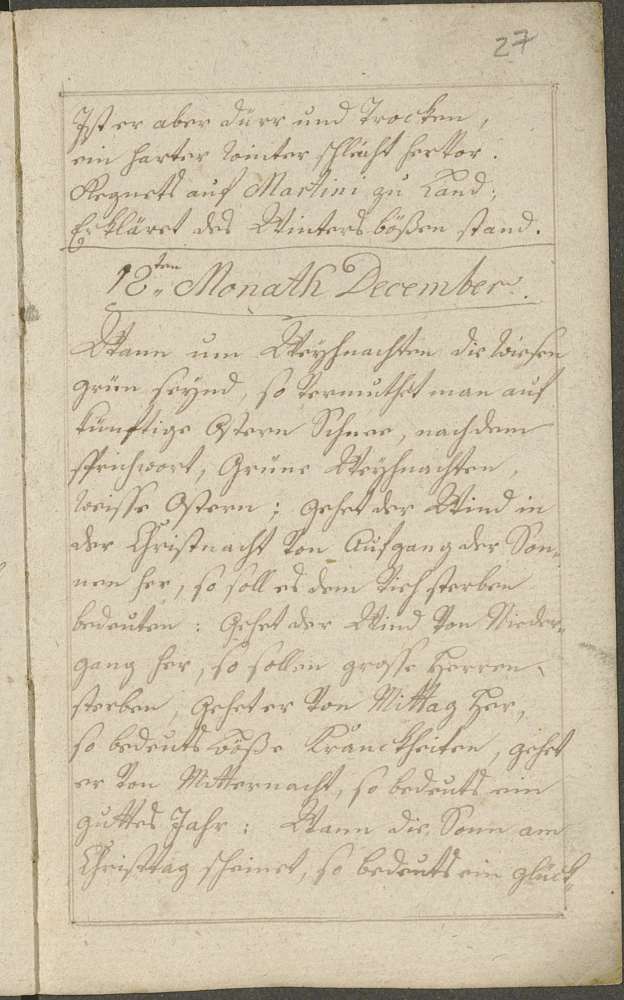 27
Ist er aber dürr und Trocken,
ein harter winter schleicht hervor.
Regnets auf Martini zu Land,
Erkläret des Winters bößen stand.
12ten Monath December.
Wann um Weyhnachten die wiesen
grün seynd, so vermuthet man auf
künftige Ostern Schnee, nach dem
sprichwort, Grüne Weyhnachten,
weisse Ostern; gehet der Wind in
der Christnacht von Aufgang der Son„
nen her, so soll es dem Vieh sterben
bedeuten: Gehet der Wind von Nieder„
gang her, so sollen grosse Herren
sterben, gehet er von Mittag her,
so bedeuts böße Kranckheiten, gehet
er von Mitternacht, so bedeuts ein
guttes Jahr: Wann die Sonn am
Christtag scheinet, so bedeuts ein glück„